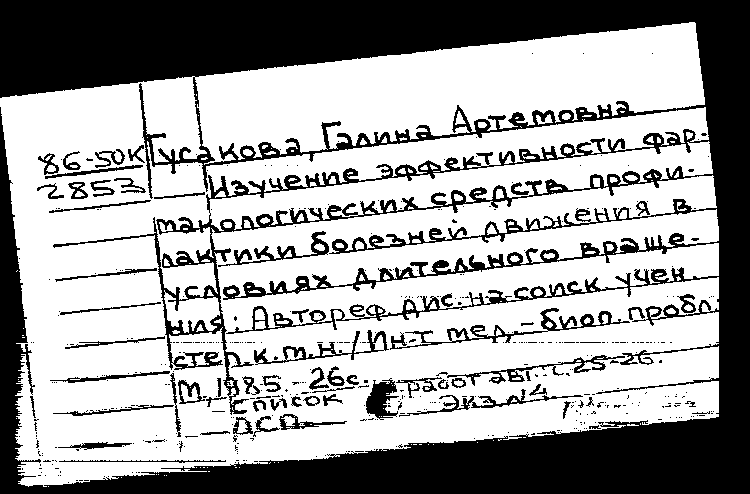 86-50К Гусакова, Галина Артемовна
2853 Изучение эффективности фар-
макологических средств профи-
лактики болезней движения в
условиях длительного враще-
ния: Автореф. дис. на соиск. учен.
степ. к.м.н. / Ин-т мед.-биол. пробл.
М., 1985. - 26с.
список работ авт.: с. 25-26.
ДСП. Экз. №4